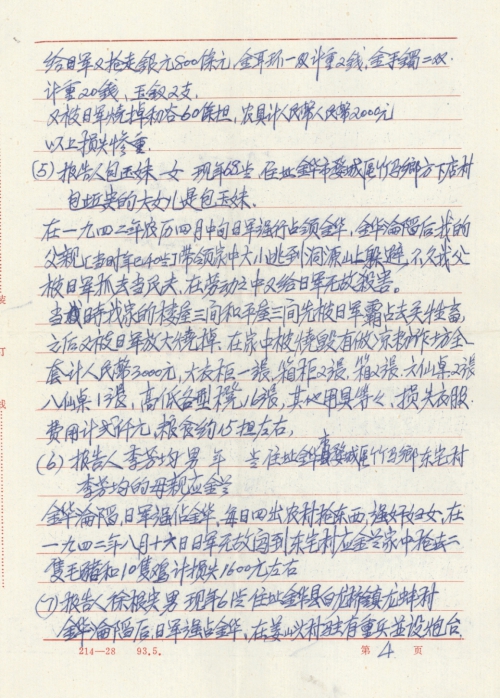 给日军又抢走銀元800條元,金耳环一双计重2钱,金手镯二双.
计重20錢,玉鈫2支.
又被日军烧掉和谷60條担,农具计人民幣人民幣2000元
以上损失惨重
(5)报告人包玉妹 女 现年68岁 住址金华市婺城區竹马鄉方下店村
包 的大女儿是包玉妹.
在一九四二年农历四月中旬日軍强行占领金华,金华淪陷后我的
父親[当时年已40岁]带领家中大小逃到洞源山上躲避,不久我父
被日軍抓去当民夫,在劳动之中又给日军无故殺害.
当时我家的楼屋三间和平屋三间先被日軍霸占去关牲畜,
之后又被日军放火燒掉.在家中被燒毁有做凉粉作坊全
套计人民幣3000元,大衣柜一張,箱柜2張,箱2張.六仙桌2張
八仙桌1張,高低台型櫈16張,其他用具等々,损失衣服
费用计 仟元,粮食約15担左右,
(6)报告人李芳均 男 年 岁 住址金华市婺城區竹马鄉东宅村
李芳均的母親应金兰
金华淪陷,日军强佔金华,每日四出农村抢东西,强奸妇女,在
一九四二年八月十六日日军无故闯到东宅村应金兰家中抢去二
隻毛猪和10隻鸡计损失1600元左右
(7)报告人徐根 男 现年61岁 住址金华县白龙桥镇龙蚌村
金华淪陷后,日军强占金华,在姜山村駐有重兵並设炮台
214—28 93.5. 第 4 页
装
订
线